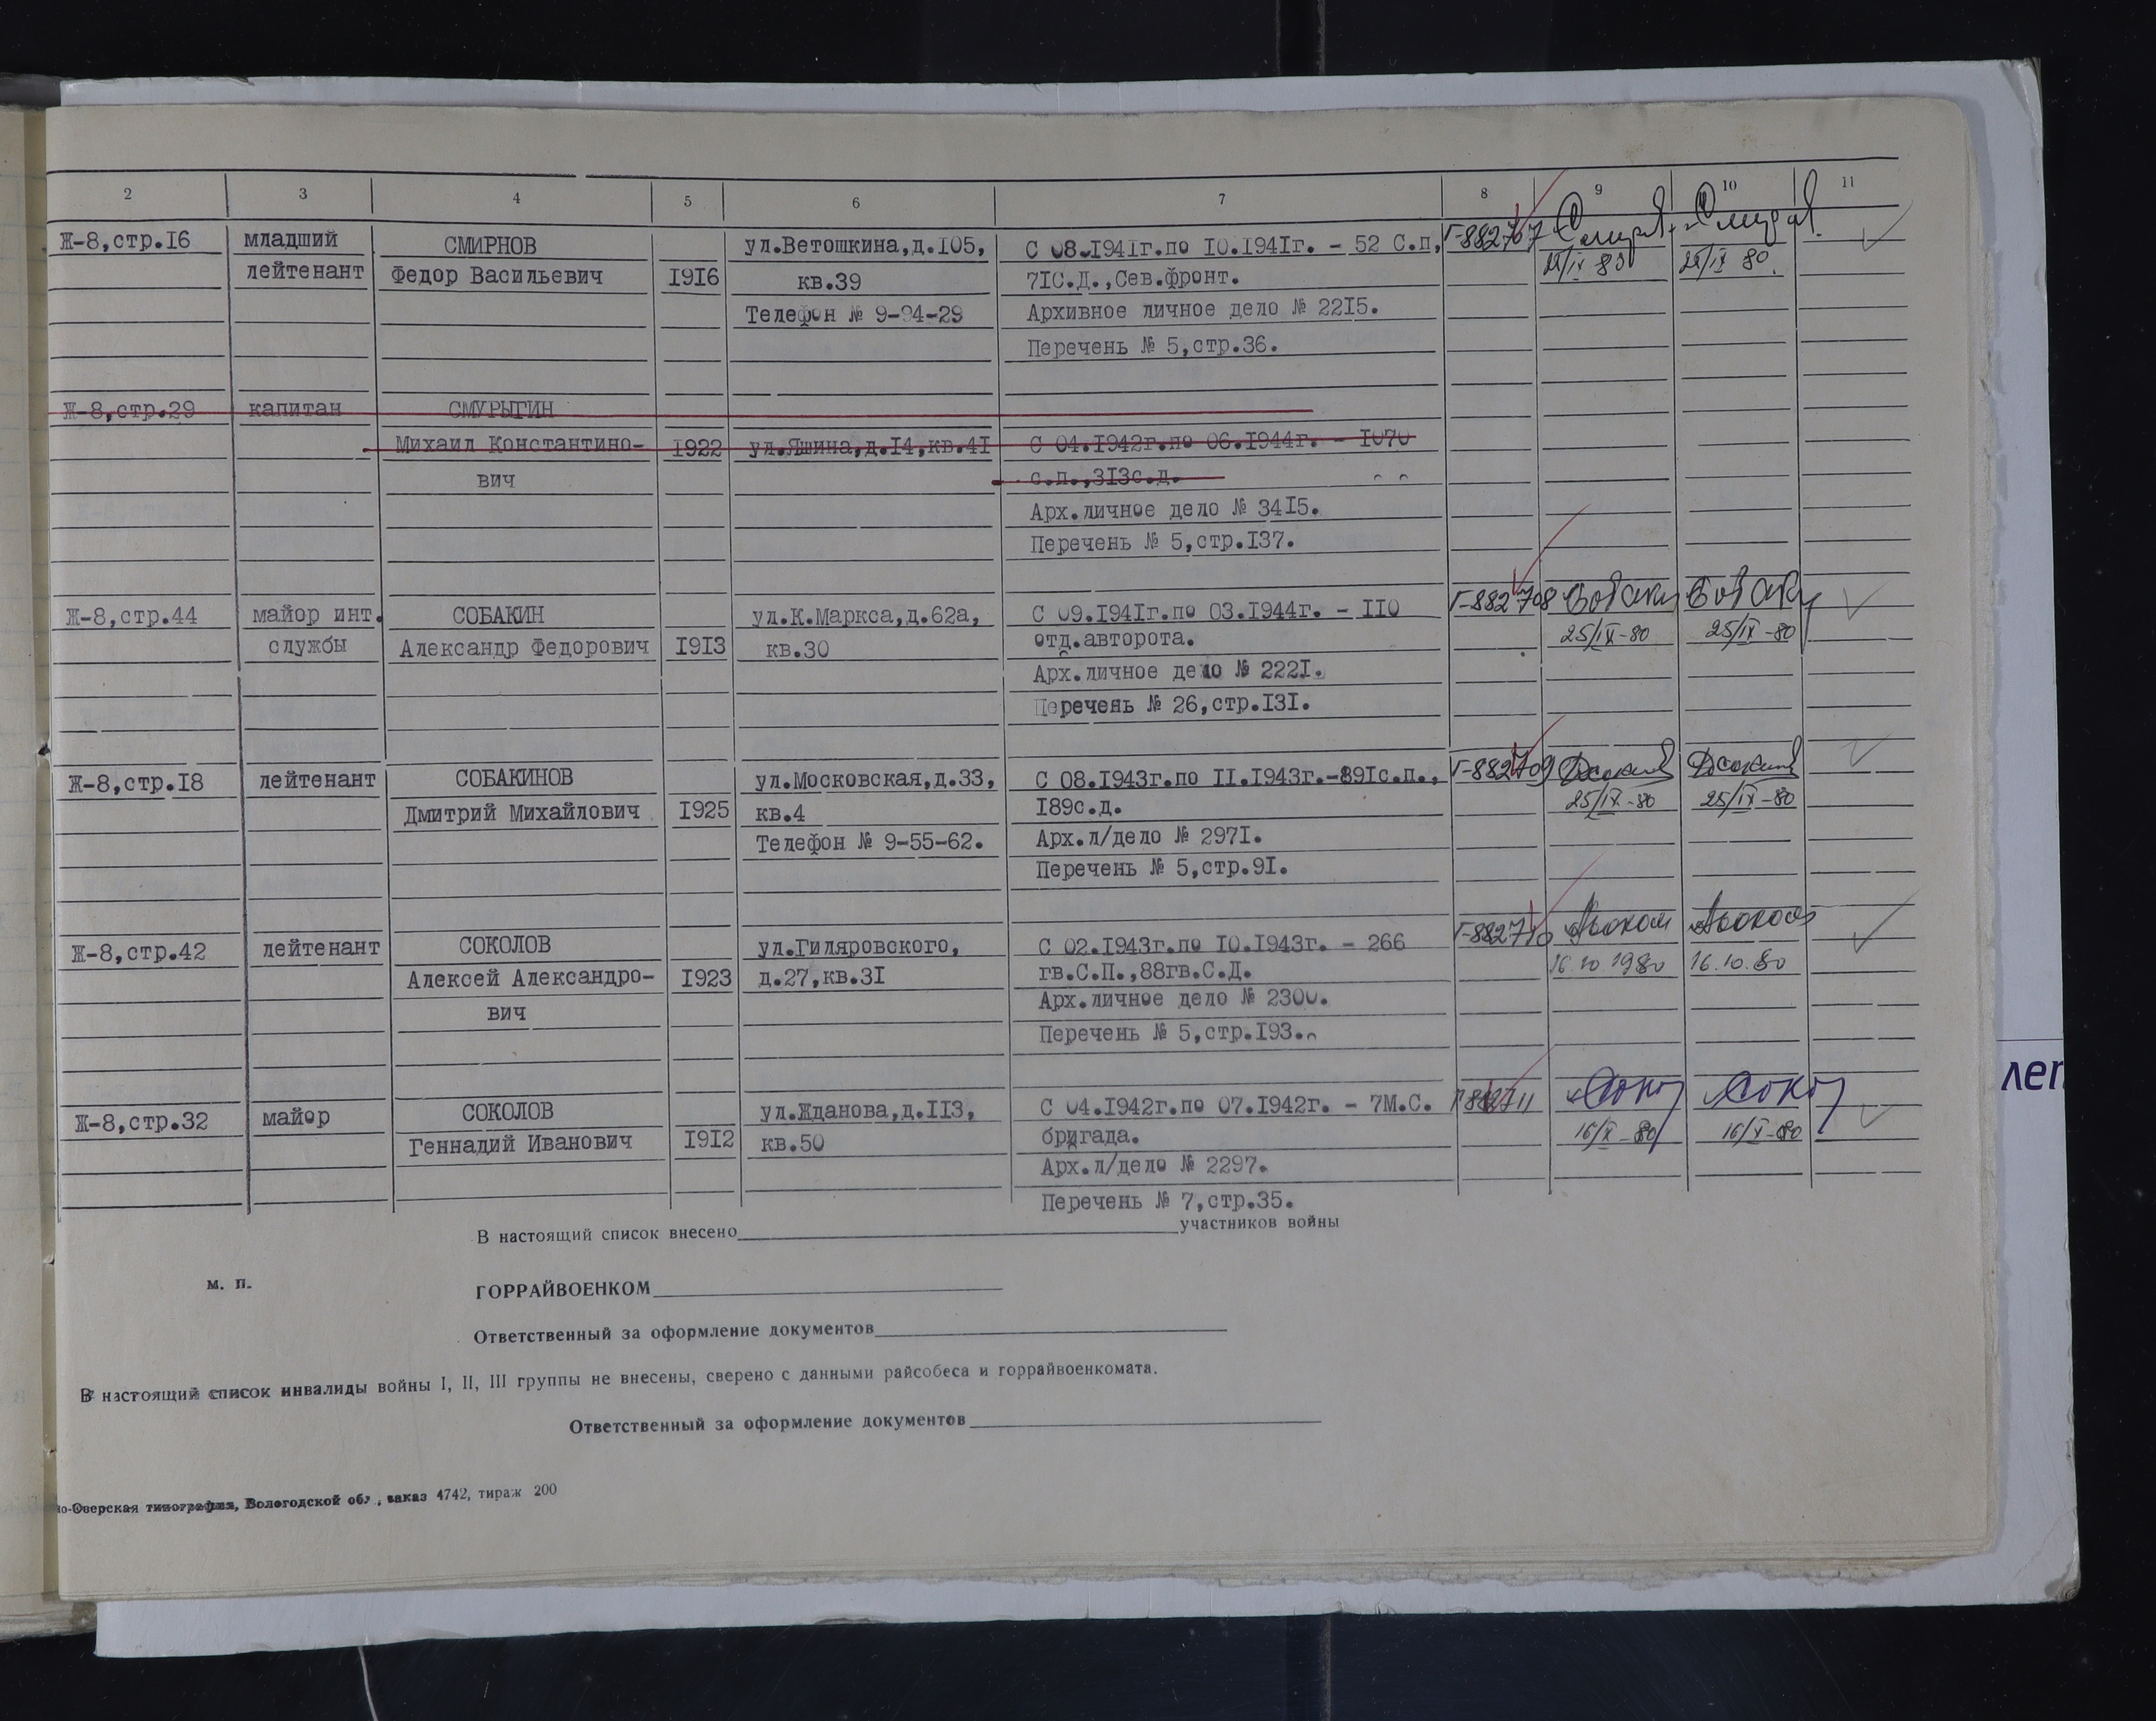 2 3 4 5 6 7 8 9 10 11
Ж-8,стр.16 младший СМИРНОВ ул.Ветошкина,д.105, С 08.1941г.по 10.1941г. - 52 С.п, Г-882707
лейтенант Федор Васильевич 1916 кв.39 71С.Д.,Сев.фронт.
Телефон № 9-94-29 Архивное личное дело № 2215.
Перечень № 5,стр.36.
Ж-8,стр.29 капитан СМУРЫГИН
Михаил Константино- 1922 ул.Яшина,д.14,кв.41 С 04.1942г.по 06.1944г. - 1070
вич с.п.,313с.д.
Арх.личное дело № 3415.
Перечень № 5,стр.137.
Ж-8,стр.44 майор инт. СОБАКИН ул.К.Маркса,д.62а, С 09.1941г.по 03.1944г. - 110 Г-882708
службы Александр Федорович 1913 кв.30 отд.авторота. 25/IX-80 25/IX-80
Арх.личное дело № 2221.
Перечень № 26,стр.131.
Ж-8,стр.18 лейтенант СОБАКИНОВ ул.Московская,д.33, С 08.1943г.по 11.1943г.-891с.п., Г-882709
Дмитрий Михайлович 1925 кв.4 189с.д. 25/IX-80 25/IX-80
Телефон № 9-55-62. Арх.л/дело № 2971.
Перечень № 5,стр.91.
Ж-8,стр.42 лейтенант СОКОЛОВ ул.Гиляровского, С 02.1943г.по 10.1943г. - 266 Г-882710
Алексей Александро- 1923 д.27,кв.31 гв.С.П.,88гв.С.Д. 16.10.1980 16.10.80
вич Арх.личное дело № 2300.
Перечень № 5,стр.193.
Ж-8,стр.32 майор СОКОЛОВ ул.Жданова,д.113, С 04.1942г.по 07.1942г. - 7М.С. Г882711
Геннадий Иванович 1912 кв.50 бригада. 16/X-80 16/X-80
Арх.л/дело № 2297.
Перечень № 7,стр.35.
В настоящий список внесено участников войны
м. п. ГОРРАЙВОЕНКОМ
Ответственный за оформление документов
В настоящий список инвалиды войны I, II, III группы не внесены, сверено с данными райсобеса и горрайвоенкомата.
Ответственный за оформление документов
но-Озерская типография, Вологодской обл., заказ 4742, тираж 200